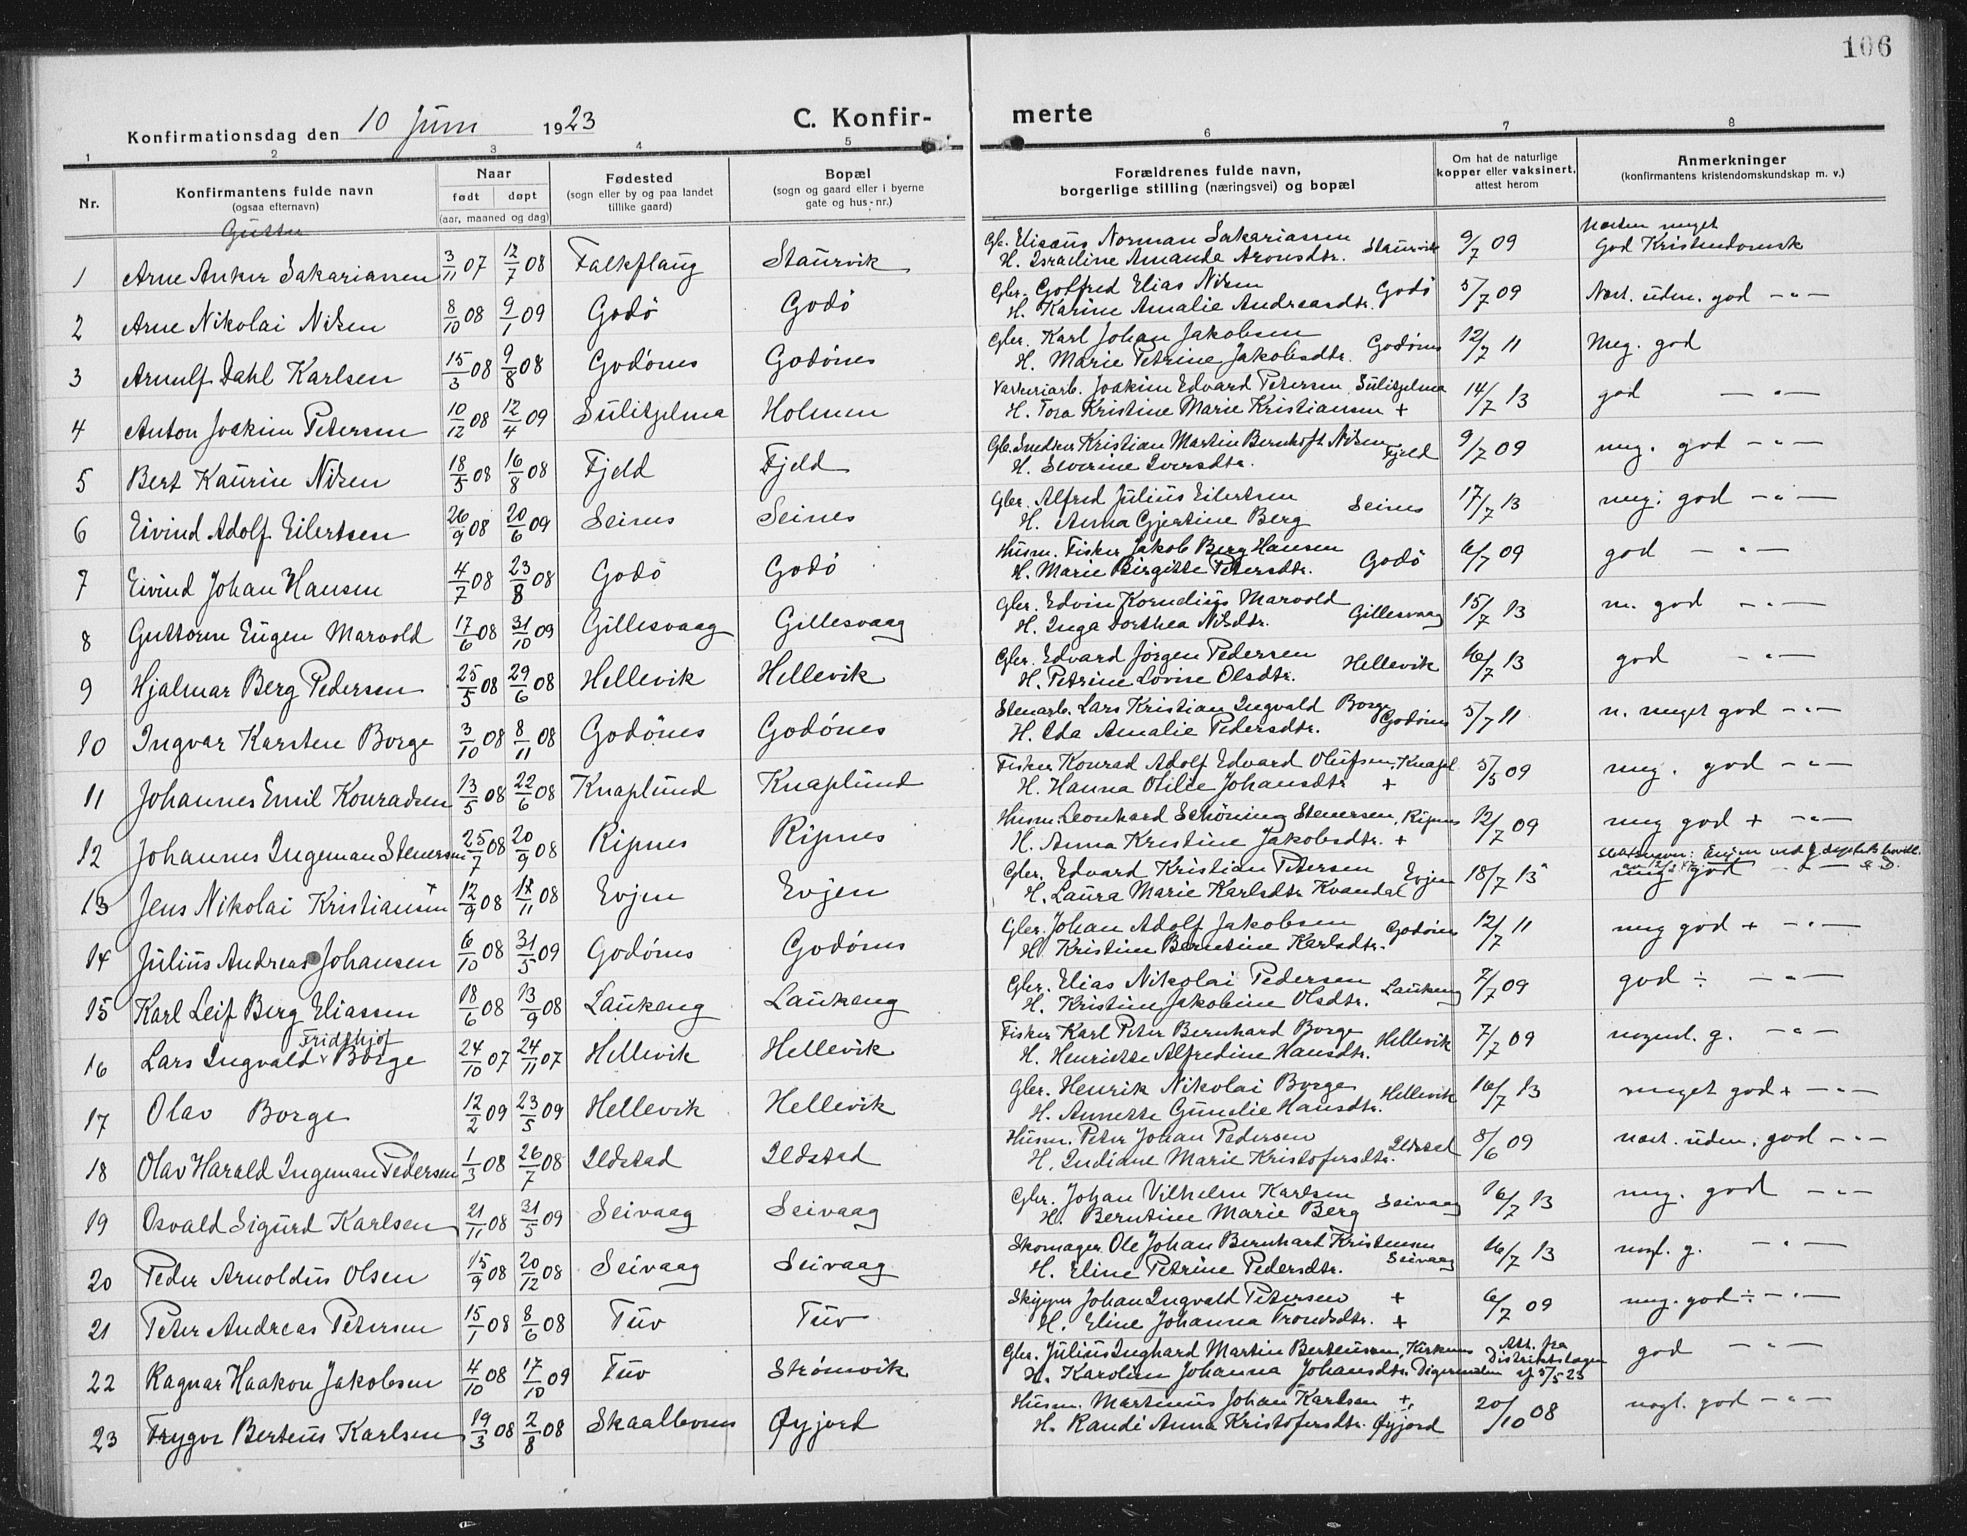 106
Konfirmationsdag den 10 Juni 1923
C. Konfir-merte
1 2 3 4 5 6 7 8
Nr.
Konfirmantens fulde navn
(ogsaa efternavn)
Naar
født døpt
(aar, maaned og dag)
Fødested
(sogn eller by og paa landet
tillike gaard)
Bopæl
(sogn og gaard eller i byerne
gate og hus-nr.)
Forældrenes fulde navn,
borgerlige stilling (næringsvei) og bopæl
Om hat de naturlige
kopper eller vaksinert,
attest herom
Anmerkninger
(konfirmantens kristendomskundskap m. v.)
Gutter
1 Arne Anker Sakariassen 3/11 07 12/7 08 Falkflaug Staurvik Gbr. Elisæus Norman Sakariassen
H. Israeline Amanda Aronsdtr. Staurvik 9/7 09 Næsten meget
God Kristendomsk
2 Arne Nikolai Nilsen 8/10 08 9/1 09 Godö Godö Gbr. Gotfred Elias Nilsen
H. Karine Amalie Andreasdtr. Godö 5/7 09 Næst. uden. god — " —
3 Arnulf Dahl Karlsen 15/3 08 9/8 08 Godönes Godönes Gbr. Karl Johan Jakobsen
H. Marie Petrine Jakobsdtr. Godönes 12/7 11 Meg. god
4 Anton Joakim Petersen 10/12 08 12/4 09 Sulitjelma Holmen Joakim Edvard Petersen Sulitjelma
H. Tora Kristine Marie Kristiansen + 14/7 13 god — " —
5 Bert Kaurin Nilsen 18/5 08 16/8 08 Fjeld Fjeld Gbr. Snedker Kristian Martin Bernhoft Nilsen
H. Severine Iversdtr. Fjeld 9/7 09 meg. god — " —
6 Eivind Adolf Eilertsen 26/9 08 20/6 09 Seines Seines Gbr. Alfred Julius Eilertsen
H. Anna Gjertine Berg Seines 17/7 13 meg. god — " —
7 Eivind Johan Hansen 4/7 08 23/8 08 Godö Godö Husm. Fisker Jakob Berg Hansen
H. Marie Birgitte Petersdtr. Godö 6/7 09 god — " —
8 Guttorm Eugen Marvold 17/6 08 31/10 09 Gillesvaag Gillesvaag Gbr. Edvin Kornelius Marvold
H. Inga Dorthea Nilsdtr. Gillesvaag 15/7 13 m. god — " —
9 Hjalmar Berg Pedersen 25/5 08 29/6 08 Hellevik Hellevik Gbr. Edvard Jörgen Pedersen
H. Petrine Lovise Olsdtr. Hellevik 16/7 13 god — " —
10 Ingvar Karsten Borge 3/10 08 8/11 08 Godönes Godönes Stenarb. Lars Kristian Ingvald Borge
H. Ida Amalie Pedersdtr. Godönes 5/7 11 n. meget god — " —
11 Johannes Emil Konradsen 13/5 08 22/6 08 Knaplund Knaplund Fisker Konrad Adolf Edvard Olufsen, Knapl
H. Hanna Otilie Johansdtr + 5/5 09 meg. god — " —
12 Johannes Ingeman Stenersen 25/7 08 20/9 08 Ripnes Ripnes Husm. Leonhard Schöning Stenersen, Ripnes
H. Anna Kristine Jakobsdtr. + 12/7 09 meg god + — " —
13 Jens Nikolai Kristiansen 12/9 08 18/11 08 Evjen Evjen Gbr. Edvard Kristian Petersen
H. Laura Marie Karlsdtr Kvandal Evjen 18/7 13 Slektsnavn: Evjen ved J. dep.
meg god
14 Julius Andreas Johansen 6/10 08 31/5 09 Godönes Godönes Gbr. Johan Adolf Jakobsen
H. Kristine Berntine Karlsdtr. Godönes 12/7 11 meg god + — " —
15 Karl Leif Berg Eliassen 18/6 08 13/9 08 Laukeng Laukeng Gbr. Elias Nikolai Pedersen
H. Kristine Jakobine Olsdtr. Laukeng 7/7 09 god ÷ — " —
16 Lars Ingvald Fridthjof Borge 24/10 07 24/11 07 Hellevik Hellevik Fisker Karl Peter Bernhard Borge
H. Henriette Alfredine Hansdtr. Hellevik 7/7 09 nogenl. g. — " —
17 Olav Borge 12/2 09 23/5 09 Hellevik Hellevik Gbr. Henrik Nikolai Borge
H. Annette Gunelie Hansdtr. Hellevik 16/7 13 meget god + — " —
18 Olav Harald Ingeman Pedersen 1/3 08 26/7 08 Ildstad Ildstad Husm. Peter Johan Pedersen
H. Indiane Marie Kristofersdtr. Ildstad 8/6 09 næst. uden. god — " —
19 Osvald Sigurd Karlsen 21/11 08 31/5 09 Seivaag Seivaag Gbr. Johan Vilhelm Karlsen
H. Berntine Marie Berg Seivaag 16/7 13 meg. god — " —
20 Peder Arnoldus Olsen 15/9 08 20/12 08 Seivaag Seivaag Skomager Ole Johan Bernhard Kristensen
H. Eline Petrine Pedersdtr. Seivaag 16/7 13 nogl. g. — " —
21 Peter Andreas Petersen 15/1 08 8/6 08 Tuv Tuv Skipper Johan Ingvald Petersen +
H. Eline Johanna Trondsdtr. + 6/7 09 meg. god ÷ — " —
22 Ragnar Haakon Jakobsen 4/10 08 17/10 09 Tuv Strömvik Gbr. Julius Inghard Martin Berteussen, Kirknes
H. Karoline Johanna Johansdtr. Digermulen Att. fra
Distriktslægen
af 5/5 23 god — " —
23 Trygve Berteus Karlsen 19/3 08 2/8 08 Skaalbones Øyjord Husm. Martinus Johan Karlsen +,
H. Randi Anna Kristofersdtr. Øyjord 20/10 08 nogl. god — " —